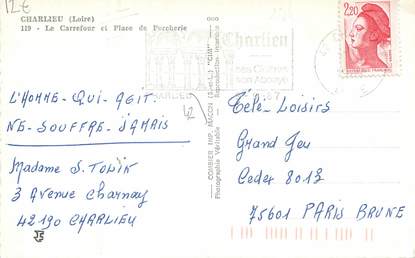 12€
CHARLIEU (Loire)
119 - Le Carrefour et Place de Porcherie
L'HOMME-QUI-AGIT
NE-SOUFFRE-JAMAIS
Madame S. TOLIK
3 Avenue Charnay
42190 CHARLIEU
COMBIER IMP. MACON (S.-et-L.) "CIM"
Photographie Véritable - Reproduction Interdite
Charlieu
son Abbaye
2,20
Télé-Loisirs
Grand Jeu
Cedex 8013
75601 PARIS BRUNE